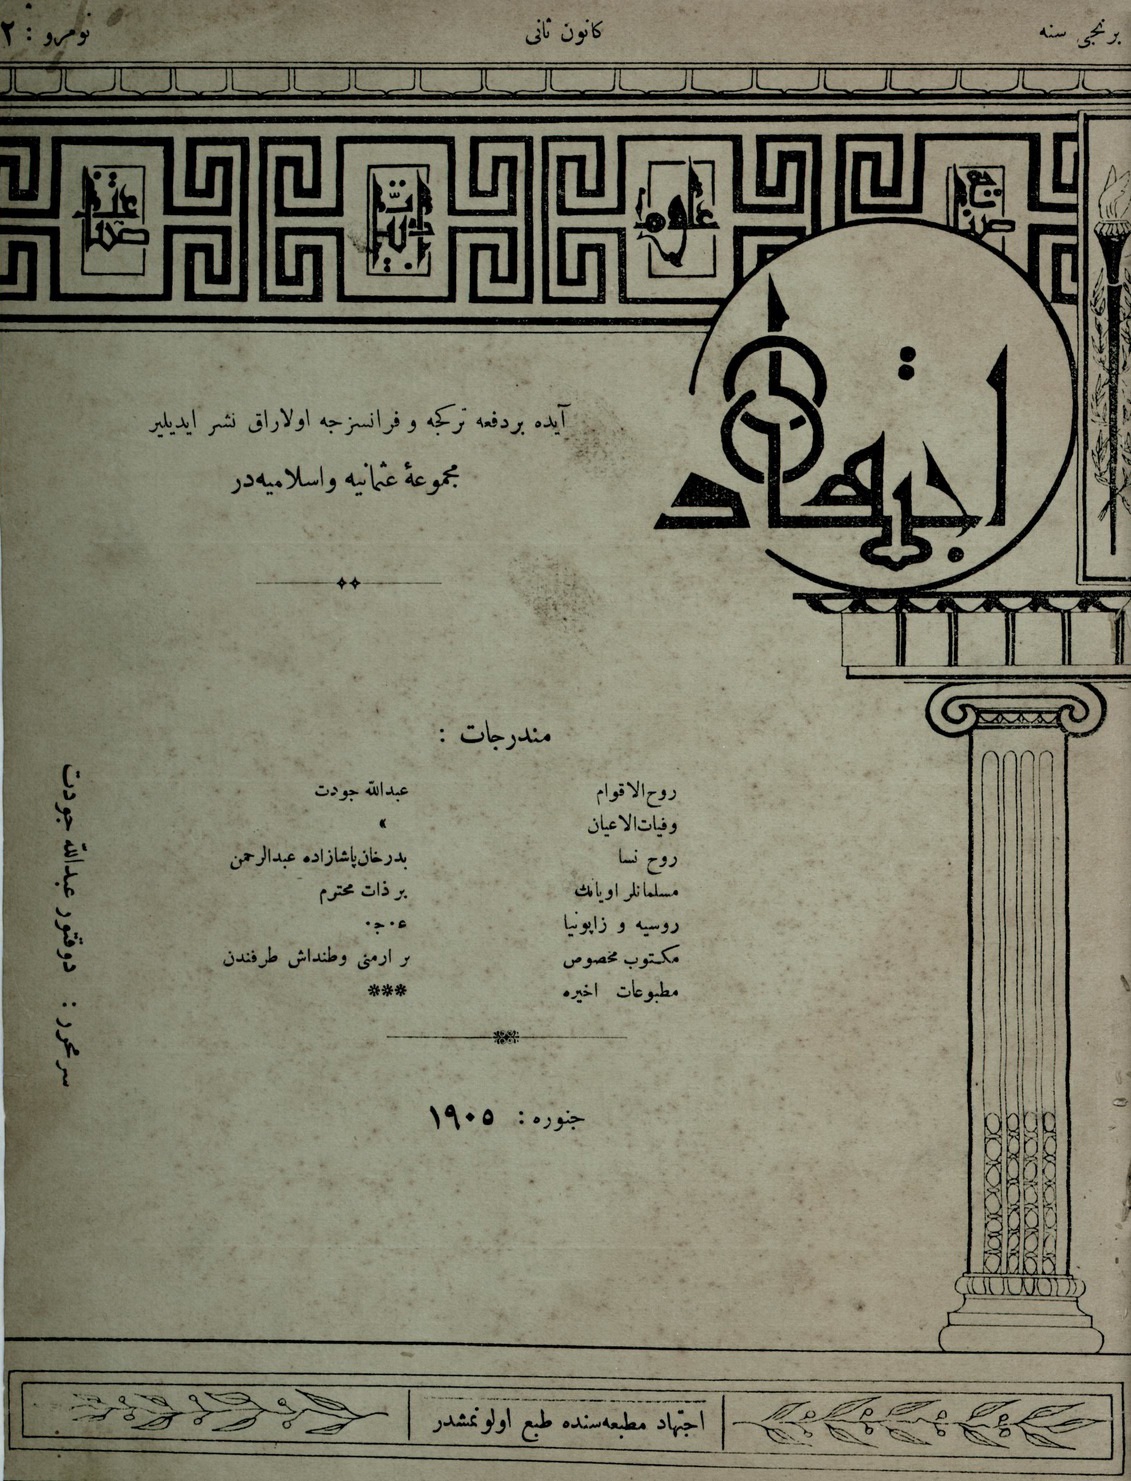 برنجی سنه
كانون ثانی
نومرو : ٢
صنایع
علوم
ادبیات
اجتهاد
آیده بردفعه تركجه و فرانسزجه اولاراق نشر ایدیلیر
مجموعۀ عثمانیه واسلامیه‌در
مندرجات :
روح‌الاقوام عبدالله جودت
وفیات‌الاعیان »
روح نسا بدرخان‌پاشازاده عبدالرحمن
مسلمانلر اویانك بر ذات محترم
روسیه و ژاپونیا ع٠ج٠
مكتوب مخصوص بر ارمنی وطنداش طرفندن
مطبوعات اخیره ***
جنوره : ١٩٠٥
سرمحرر : دوقتور عبدالله جودت
اجتهاد مطبعه‌سنده طبع اولونمشدر